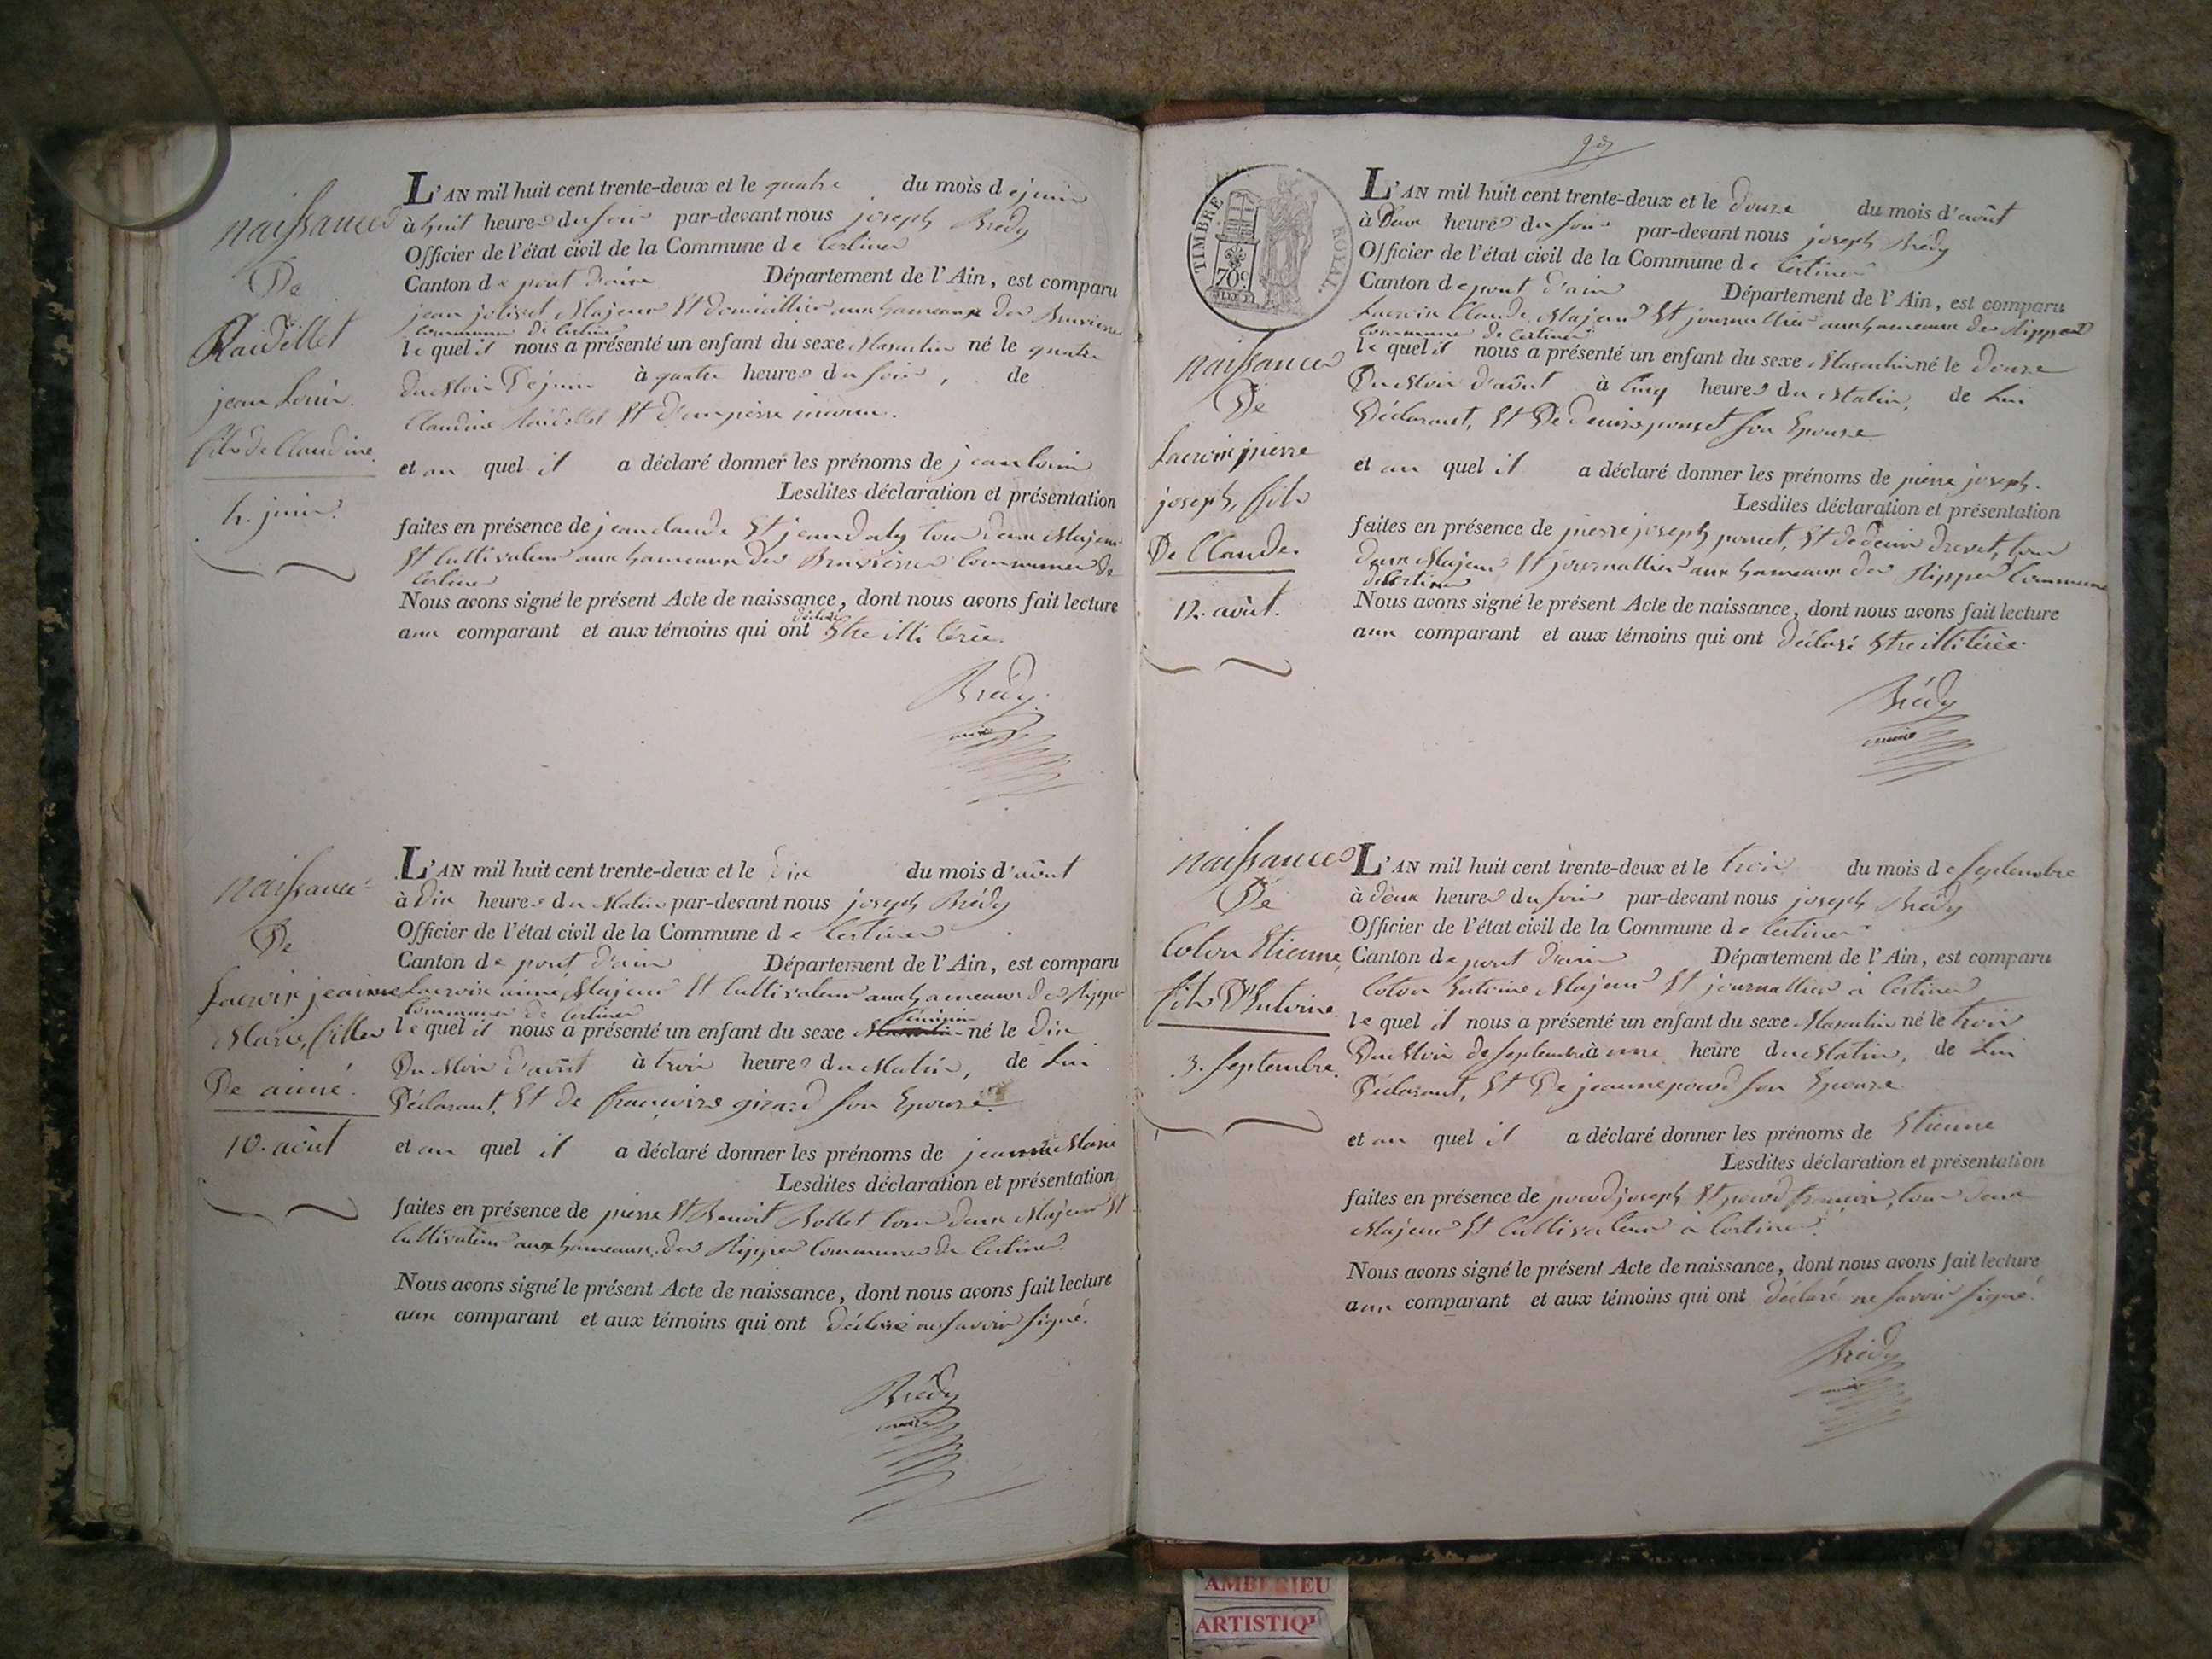 naissance
De
jean Louis.
fils de Claudine.
4. juin.
L'AN mil huit cent trente-deux et le quatre du mois de juin
à huit heures du soir par-devant nous joseph Brédy
Officier de l'état civil de la Commune de Certines
Canton de pont d'ain Département de l'Ain, est comparu
jean Majeur Et domicillier aux hameaux des
Commune de Certines
lequel il nous a présenté un enfant du sexe Masculin né le quatre
du Mois De juin à quatre heures du soir, de
Claudine Et d'un père inconnu.
et au quel il a déclaré donner les prénoms de jean louis
Lesdites déclaration et présentation
faites en présence de jean claude Et jean tous deux Majeurs
Et Cultivateurs aux hameaux des Commune de
Certines
Nous avons signé le présent Acte de naissance, dont nous avons fait lecture
aux comparant et aux témoins qui ont déclaré Etre illitérée.
Brédy.
maire
naissance
De
Lacroix jeanne
Marie, fille
De aimé.
10. août
L'AN mil huit cent trente-deux et le dix du mois d'août
à dix heures du Matin par-devant nous joseph Brédy
Officier de l'état civil de la Commune de Certines
Canton de pont d'ain Département de l'Ain, est comparu
Lacroix aimé Majeur Et Cultivateur aux hameaux des Rippes
Commune de Certines
lequel il nous a présenté un enfant du sexe féminin né le dix
Du Mois d'août à trois heures du Matin, de Lui
Déclarant, Et de françoise girard son Epouse.
et au quel il a déclaré donner les prénoms de jeanne Marie
Lesdites déclaration et présentation
faites en présence de pierre Et Benoit Bollet tous deux Majeurs Et
Cultivateurs aux hameaux des Rippes Commune de Certines.
Nous avons signé le présent Acte de naissance, dont nous avons fait lecture
aux comparant et aux témoins qui ont déclaré ne savoir signé.
Brédy
maire
TIMBRE ROYAL.
70c
naissance
De
Lacroix pierre
joseph, fils
De Claude.
12. août.
L'AN mil huit cent trente-deux et le douze du mois d'août
à Deux heures du soir par-devant nous joseph Brédy
Officier de l'état civil de la Commune de Certines
Canton de pont d'ain Département de l'Ain, est comparu
Lacroix Claude Majeur Et journallier aux hameaux des Rippes
Commune de Certines
lequel il nous a présenté un enfant du sexe Masculin né le douze
Du Mois d'août à Cinq heures du Matin, de Lui
Déclarant, Et De denise poncet son Epouse
et au quel il a déclaré donner les prénoms de pierre joseph.
Lesdites déclaration et présentation
faites en présence de pierre joseph poncet, Et de denis drevet, tous
deux Majeurs Et journalliers aux hameaux des Rippes Commune
de Certines
Nous avons signé le présent Acte de naissance, dont nous avons fait lecture
aux comparant et aux témoins qui ont déclaré Etre illitérée.
Brédy
maire
naissance
De
Colon Etienne,
fils D'Antoine.
3. septembre.
L'AN mil huit cent trente-deux et le trois du mois de septembre
à deux heures du soir par-devant nous joseph Brédy
Officier de l'état civil de la Commune de Certines
Canton de pont d'ain Département de l'Ain, est comparu
Colon Antoine Majeur Et journallier à Certines
lequel il nous a présenté un enfant du sexe Masculin né le trois
Du Mois de septembre à une heure du Matin, de Lui
Déclarant, Et De jeanne son Epouse
et au quel il a déclaré donner les prénoms de Etienne
Lesdites déclaration et présentation
faites en présence de joseph Et françois, tous deux
Majeurs Et Cultivateurs à Certines.
Nous avons signé le présent Acte de naissance, dont nous avons fait lecture
aux comparant et aux témoins qui ont déclaré ne savoir signé.
Brédy
maire
AMBERIEU
ARTISTIQU